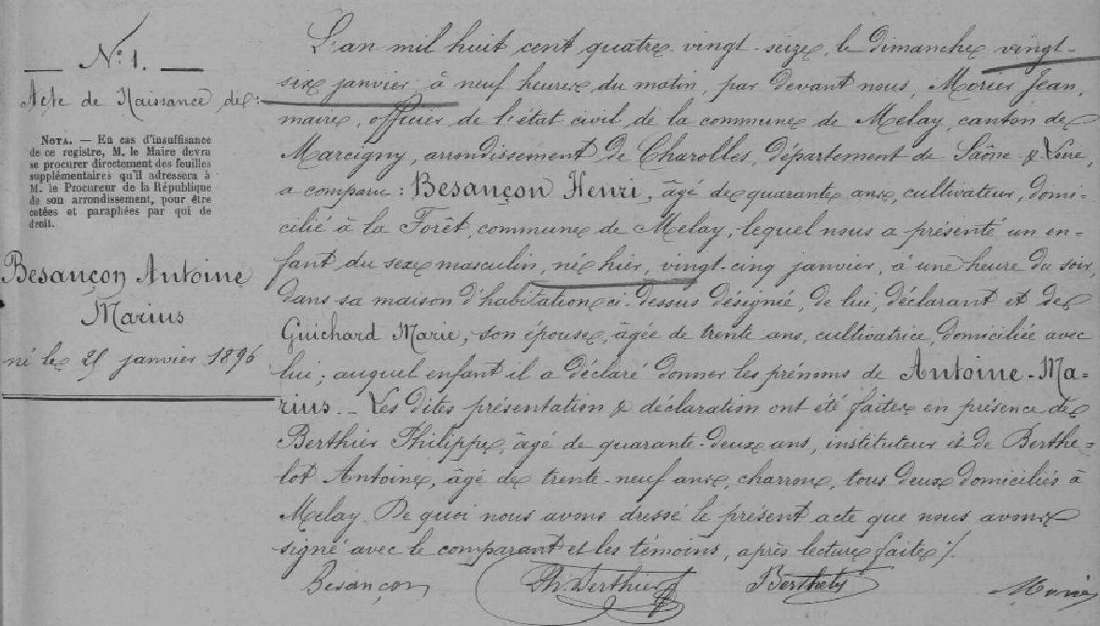 N° 1.
Acte de Naissance de :
NOTA. — En cas d'insuffisance
de ce registre, M. le Maire devra
se procurer directement des feuilles
supplémentaires qu'il adressera à
M. le Procureur de la République
de son arrondissement, pour être
cotées et paraphées par qui de
droit.
Besançon Antoine
Marius
né le 25 janvier 1896
L'an mil huit cent quatre vingt-seize, le dimanche vingt-
six janvier, à neuf heures du matin, par devant nous, Morier Jean,
maire, officier de l'état civil de la commune de Melay, canton de
Marcigny, arrondissement de Charolles, département de Saône & Loire,
a comparu : Besançon Henri, âgé de quarante ans, cultivateur, domi-
cilié à la Forêt, commune de Melay, lequel nous a présenté un en-
fant du sexe masculin, né hier, vingt-cinq janvier, à une heure du soir,
dans sa maison d'habitation ci-dessus désignée, de lui, déclarant et de
Guichard Marie, son épouse, âgée de trente ans, cultivatrice, domiciliée avec
lui ; auquel enfant il a déclaré donner les prénoms de Antoine-Ma-
rius. — Les dites présentation & déclaration ont été faites en présence de
Berthier Philippe, âgé de quarante-deux ans, instituteur et de Berthe-
lot Antoine, âgé de trente-neuf ans, charron, tous deux domiciliés à
Melay. De quoi nous avons dressé le présent acte que nous avons
signé avec le comparant et les témoins, après lecture faite ./.
Besançon Ph. Berthier Berthelot Morier